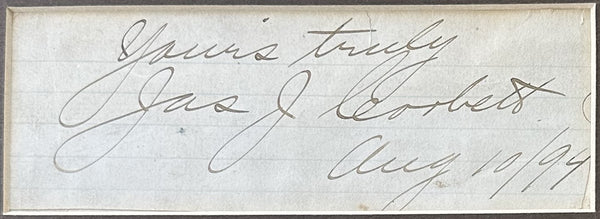 Your's truly
Jas J Corbett.
Aug 10/94